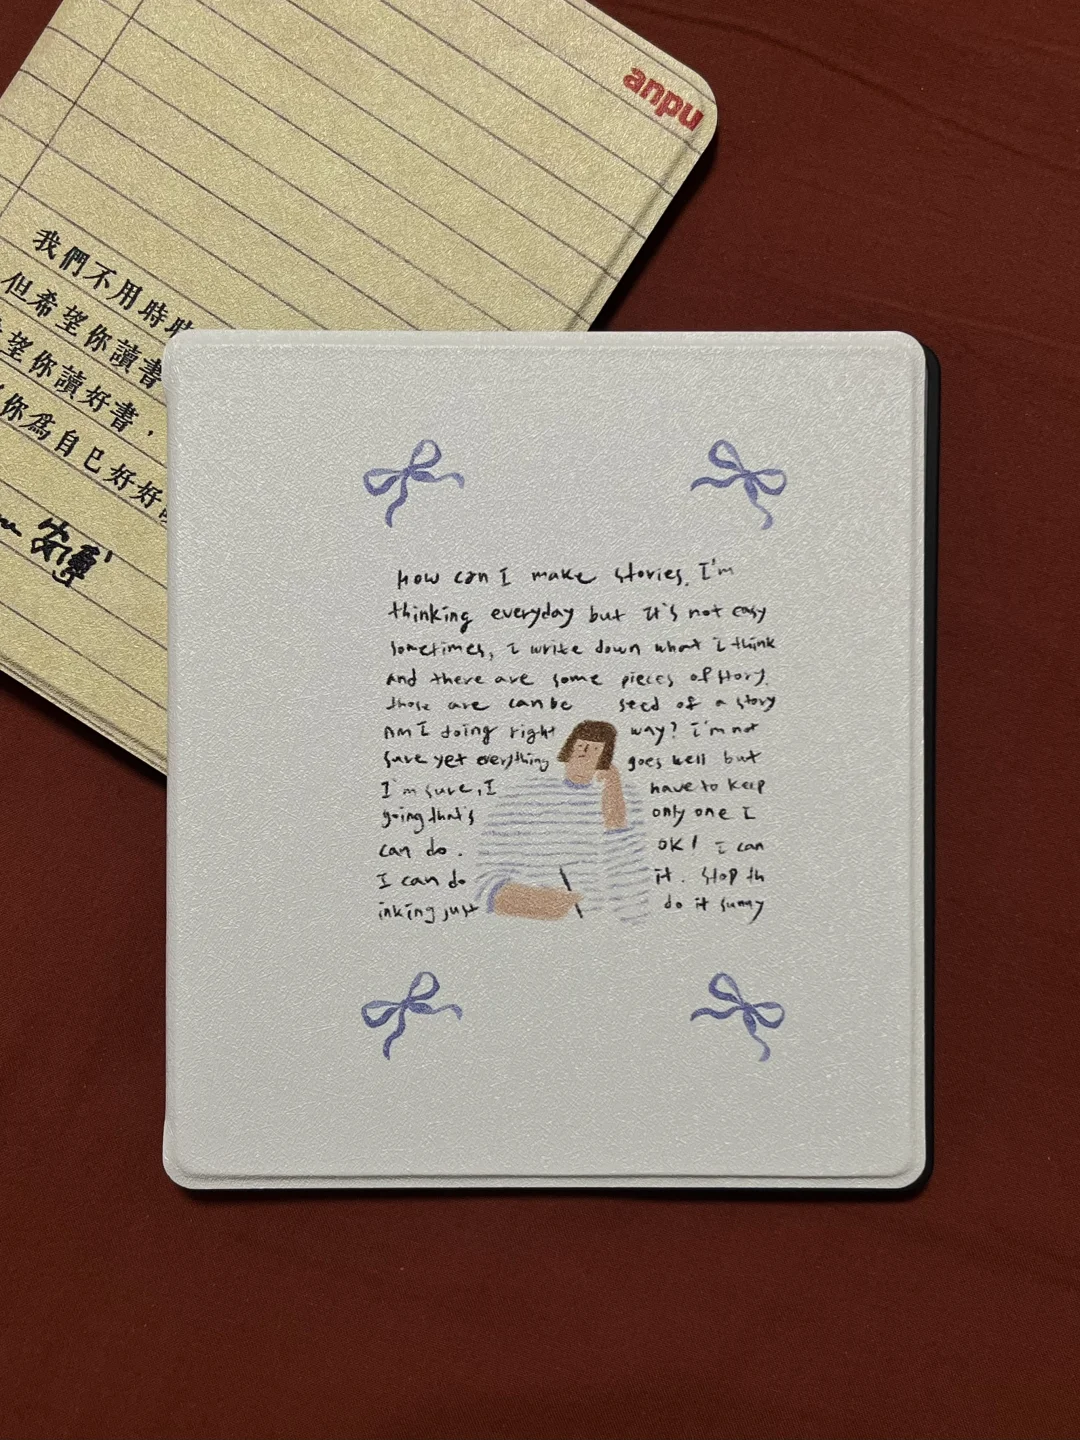 anpu
我們不用時時
但希望你讀書
望你讀好書，
你為自己好好
How can I make stories. I'm
thinking everyday but it's not easy
sometimes, I write down what I think
and there are some pieces of story.
those are can be seed of a story
Am I doing right way? I'm not
sure yet everything goes well but
I'm sure, I have to keep
going that's only one I
can do. OK! I can
I can do it. Stop th
inking just do it sunny